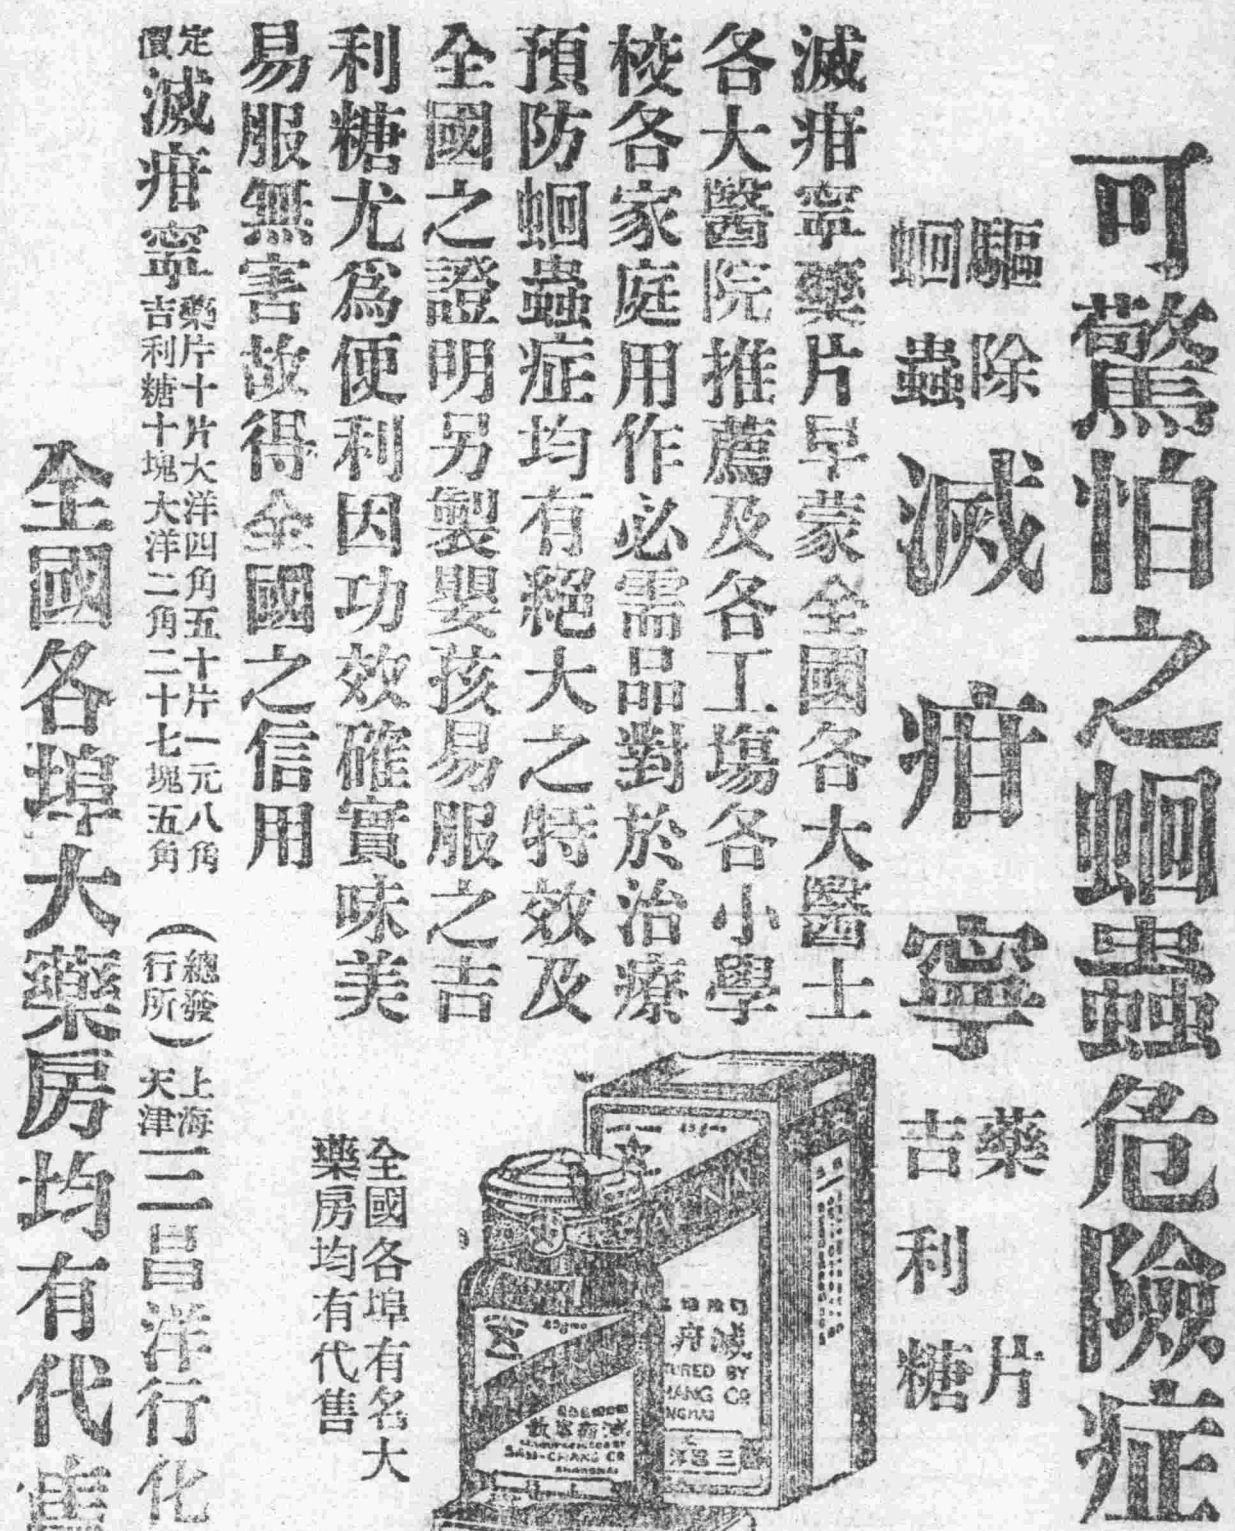 可驚怕之蛔蟲危險症
驅除
蛔蟲
滅疳寧
藥片
吉利糖
滅疳寧藥片早蒙全國各大醫士
各大醫院推薦及各工塲各小學
校各家庭用作必需品對於治療
預防蛔蟲症均有絕大之特效及
全國之證明另製嬰孩易服之吉
利糖尤爲便利因功效確實味美
易服無害故得全國之信用
定價
滅疳寧
藥片十片大洋四角五十片一元八角
吉利糖十塊大洋二角二十七塊五角
(總發行所)
上海
天津
三昌洋行化
全國各埠大藥房均有代售
全國各埠有名大
藥房均有代售
45gms
TURED BY
HANG CO
NGHAI
三昌洋
45gms
滅疳寧散
SAN-CHANG CO
SHANGHAI